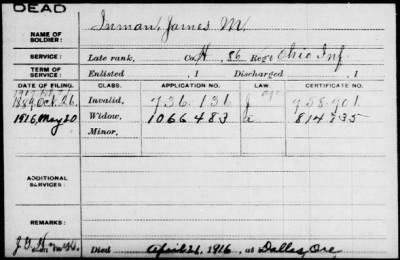 DEAD
NAME OF SOLDIER: Inman, James M.
SERVICE: Late rank, Co. H, 86 Reg't Ohio Inf
TERM OF SERVICE: Enlisted , 1 Discharged , 1
DATE OF FILING. CLASS. APPLICATION NO. LAW. CERTIFICATE NO.
1889 Oct. 26. Invalid, 736.136 738.901
1916, May 20 Widow, 1066483 814735
Minor,
ADDITIONAL SERVICES:
REMARKS:
Died April 26, 1916, at Dallas, Ore